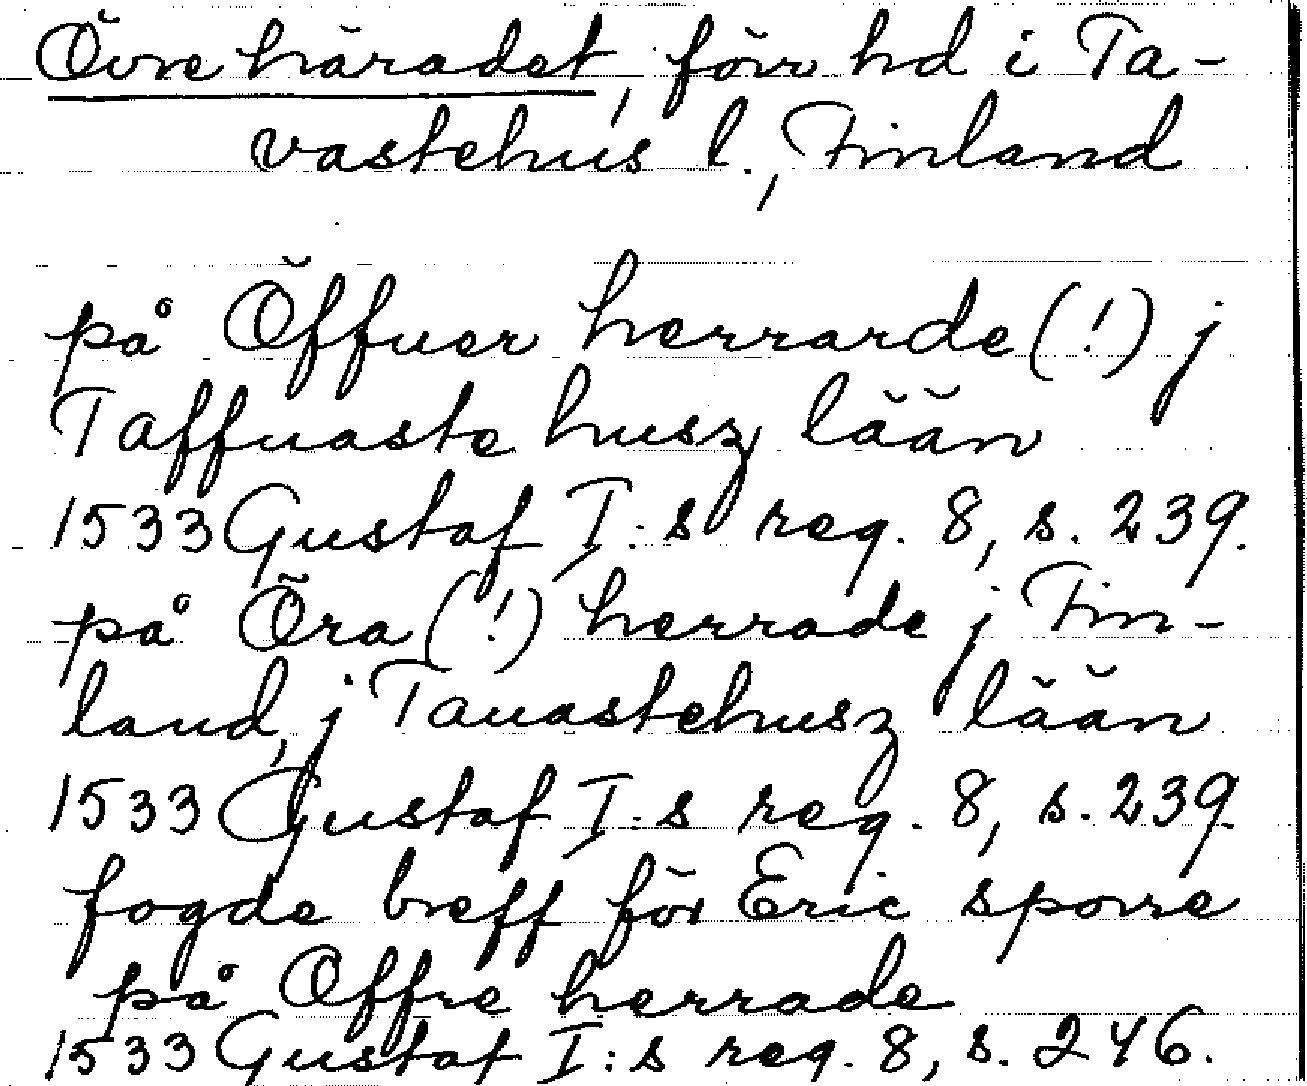 Övre häradet, förr hd i Ta-
vastehus l., Finland
på Öffuer herrarde (!) j
Taffuaste husz lään
1533 Gustaf I:s reg. 8, s. 239.
på Öra (!) herrade j Fin-
land, j Tauastehusz lään
1533 Gustaf I:s reg. 8, s. 239.
fogde breff för Eric sporre
på Offre herrade
1533 Gustaf I:s reg. 8, s. 246.